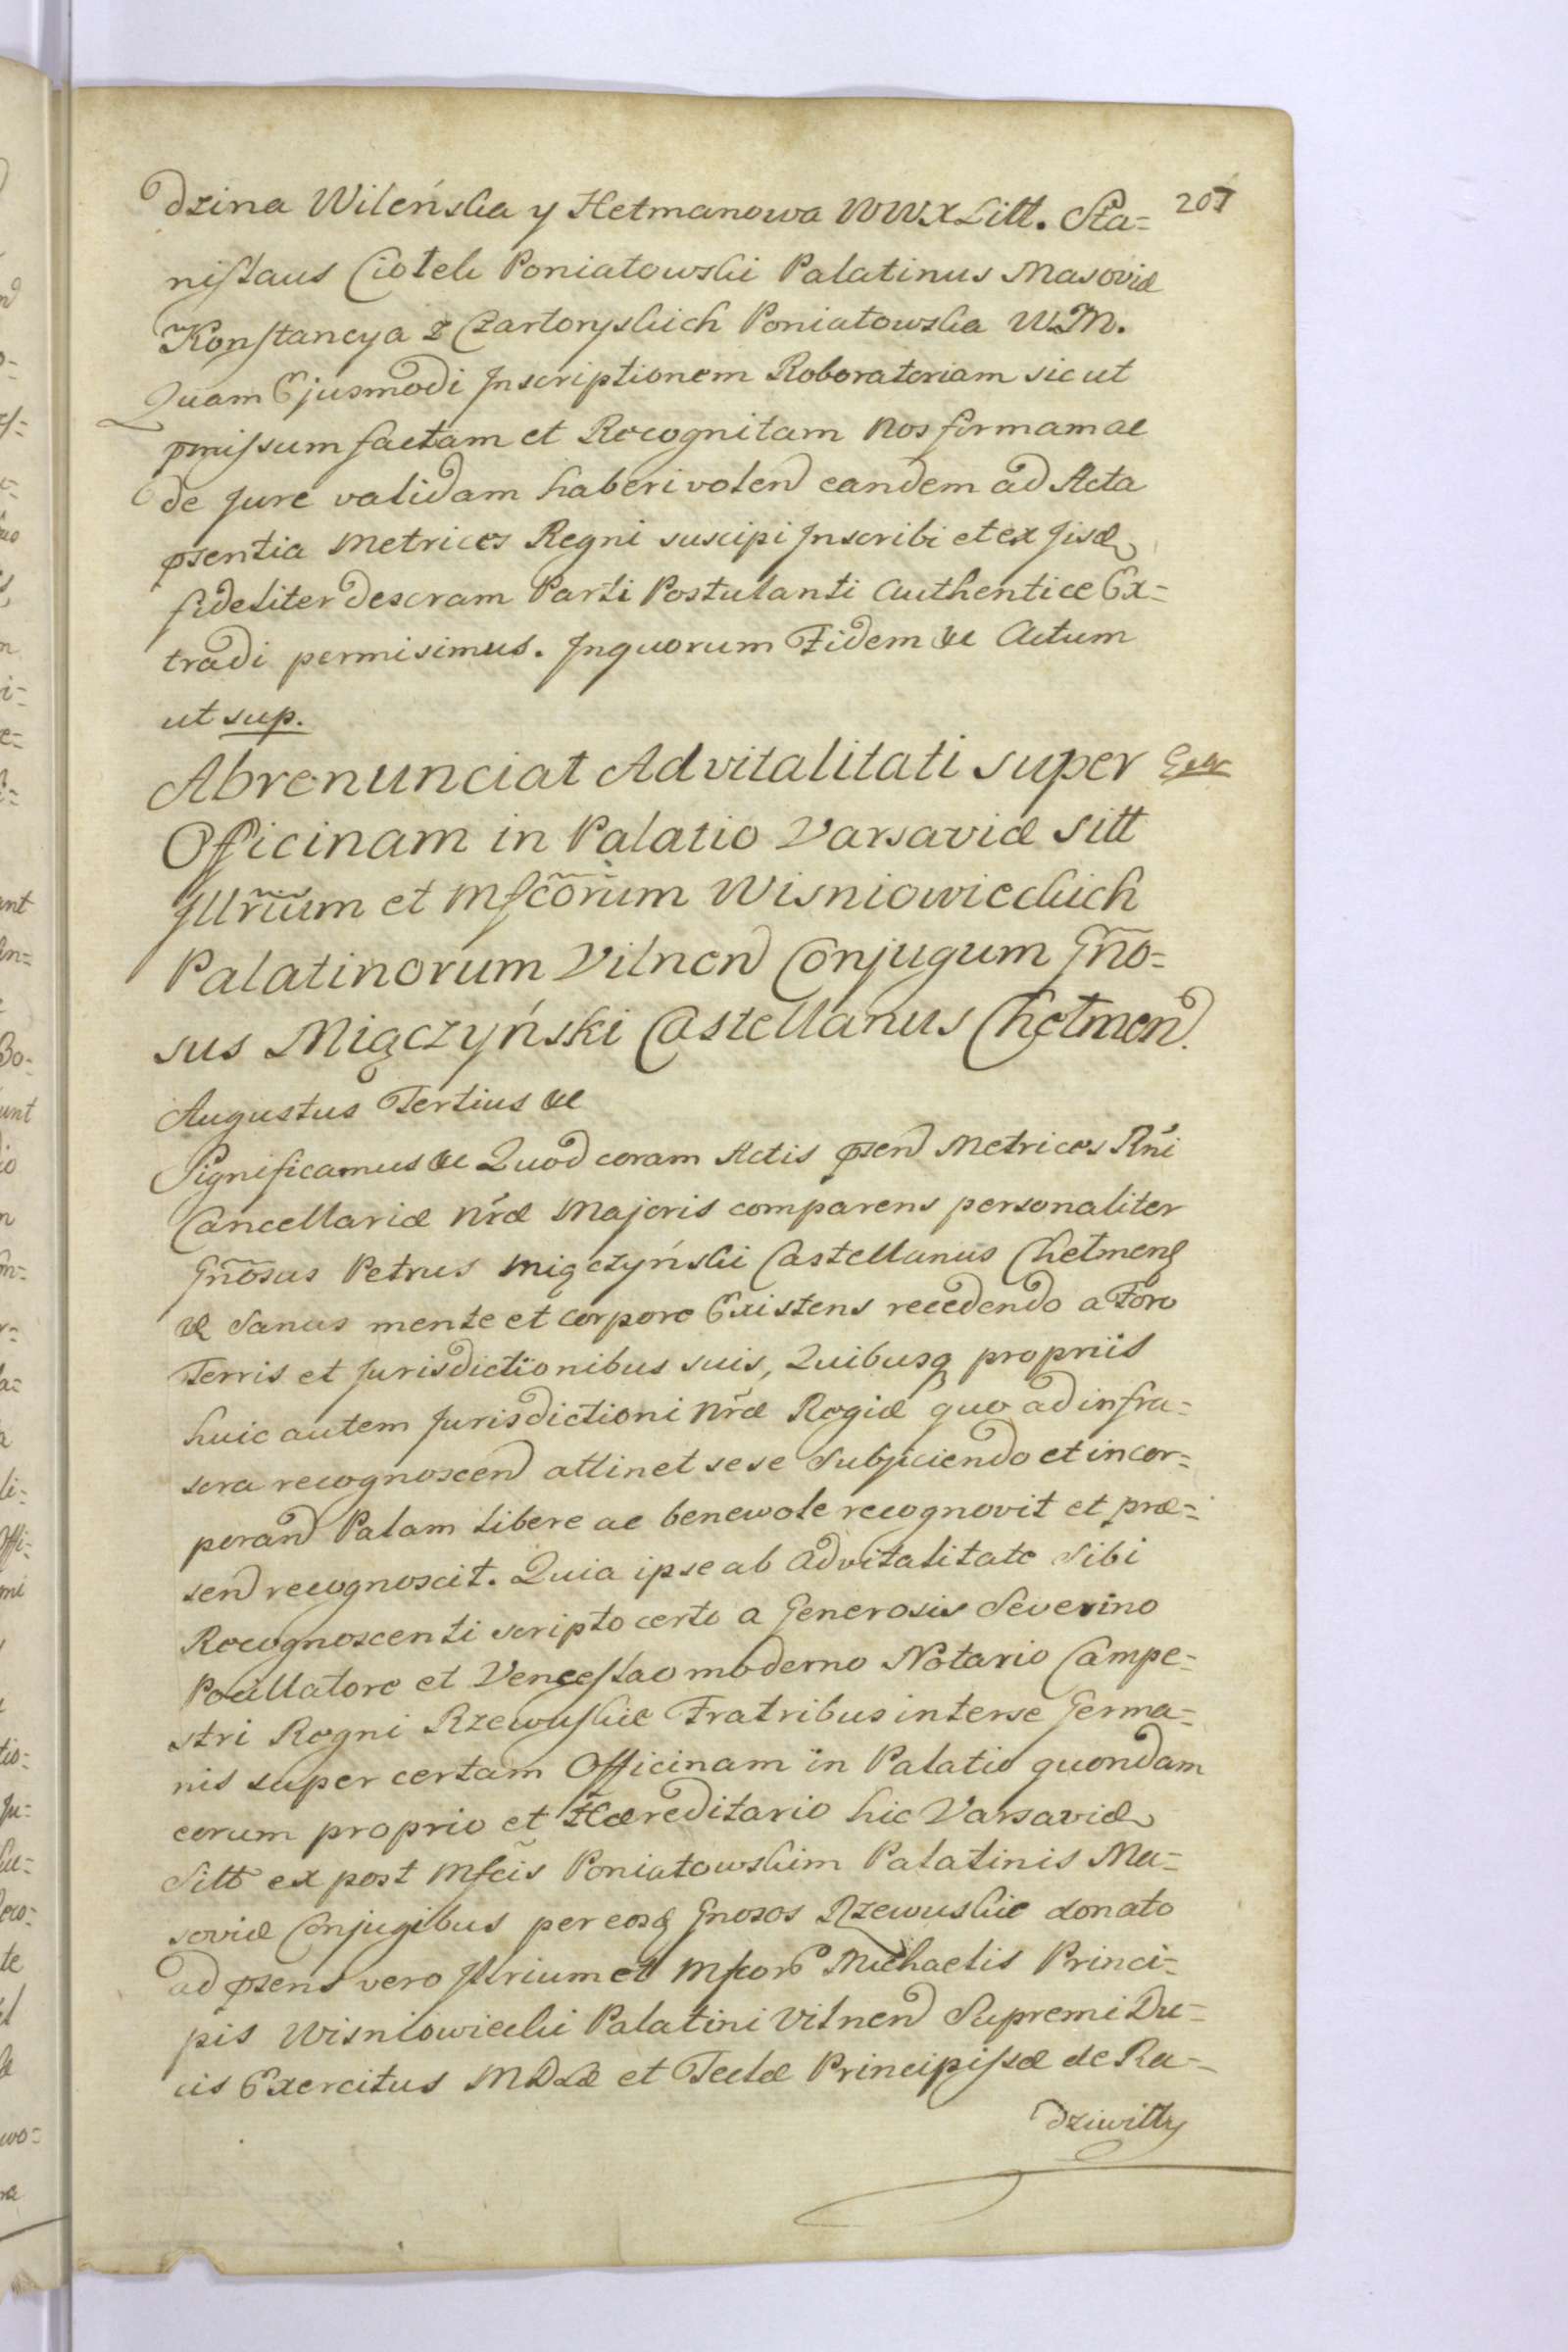 207
dzina Wileńska y Hetmanowa WWXLitt. Sta=
nisłaus Ciołek Poniatowski Palatinus Masoviæ
Konstancya z Czartoryskich Poniatowska W.M.
Quam Ejusmodi Inscriptionem Roboratoriam sicut
pmissum factam et Recognitam Nos firmam ac
de Jure validam haberi volen eandem ad Acta
psentia Metrices Regni suscipi Inscribi et ex Jisd
fideliter descram Parti Postulanti Authentice Ex=
tradi permisimus. Inquorum Fidem &c Actum
ut sup.
Abrenunciat Advitalitati super
Officinam in Palatio Varsaviæ Sitt
Jllr̃ium et Mfc̃orum Wisniowieckich
Palatinorum Vilnen Conjugum Gño=
sus Miączyński Castellanus Chełmen.
Augustus Tertius &c
Significamus &c Quod coram Actis psen Metrices Rńi
Cancellariæ Nr̃æ Majoris comparens personaliter
Gñosus Petrus Miączyński Castellanus Chełmens
&c Sanus mente et corpore Existens recedendo a Foro
Terris et Jurisdictionibus suis, Quibusq propriis
huic autem Jurisdictioni Nr̃æ Regiæ quo ad infra=
scra recognoscen attinet sese Subjiciendo et incor=
poran Palam libere ac benewole recognovit et præ=
sen recognoscit. Quia ipse ab Advitalitate Sibi
Recognoscenti scripto certo a Generosis Severino
Pocillatore et Venceslao moderno Notario Campe=
stri Regni Rzewuskie Fratribus interse Germa=
nis super certam Officinam in Palatio quondam
eorum proprio et Hæreditario hic Varsaviæ
Sitt ex post Mfcis Poniatowskim Palatinis Ma=
soviæ Conjugibus per eosq Gnosos Rzewuskie donato
ad psens vero Jlrium et Mfcor Michaelis Princi=
pis Wisniowiecki Palatini Vilnen Supremi Du=
cis Exercitus MDLæ et Teclæ Principissæ de Ra=
dziwiłły